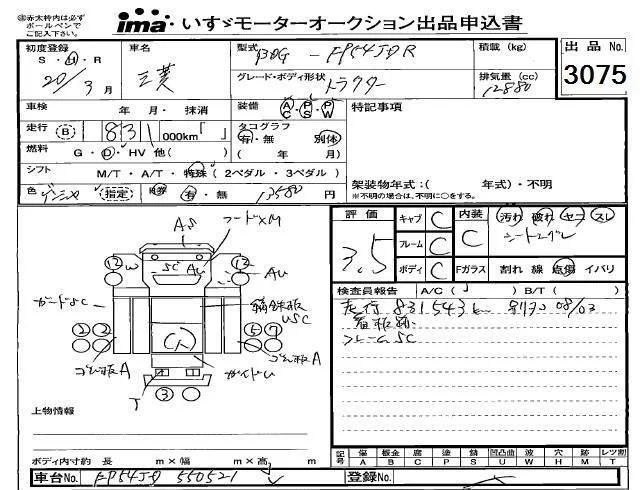 ㊟赤太枠内は必ず
ボールペンで
ご記入下さい。
ima いすゞモーターオークション出品申込書
初度登録
S・H・R
20/3月
車名
三菱
型式
BDG-FP54JDR
グレード・ボディ形状
トラクター
積載 (kg)
排気量 (cc)
12880
出品 No.
3075
車検 年 月・ 抹消
装備 A/C P/S P/W
特記事項
走行 (B) 831 000km「 」
タコグラフ
有・無 別体
( 年 月)
燃料 G・D・HV 他( )
シフト M/T・A/T・特殊 (2ペダル・3ペダル)
色 指定
R券 有・無 13580円
架装物年式:( 年式)・不明
※不明の場合は、不明に○をする。
評価
3.5
キャブ C
フレーム C
ボディ C
内装 C
汚れ 破れ コゲ スレ
Fガラス 割れ 線 点傷 イバリ
検査員報告 A/C( ) B/T( )
走行 831543
看板跡
フレームSC
AS
フードXM
12 W
SC
AU
12
AU
ガードSC
縞鉄板
USC
2 2
5 7
ゴム板A
ゴム板A
T
ガイドU
3
上物情報
ボディ内寸約 長 m×幅 m×高 m
記号
傷 板金 腐 塗 錆 凹凸曲 波 穴 跡 レツ割
A B C P S U W H M T
車台No. FP54JD 550521
登録No.